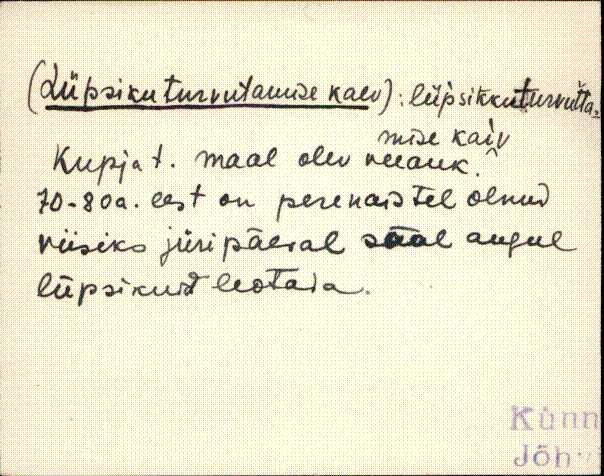 (Lüpsiku turvutamise kaev): lüpsikkuturvutta-
mise kaiv
Kupja t. maal olev veeauk.
70-80 a. eest on perenaistel olnud
viisiks jüripäeval sääl augul
lüpsikuid leotada.
Künn
Jõhvi